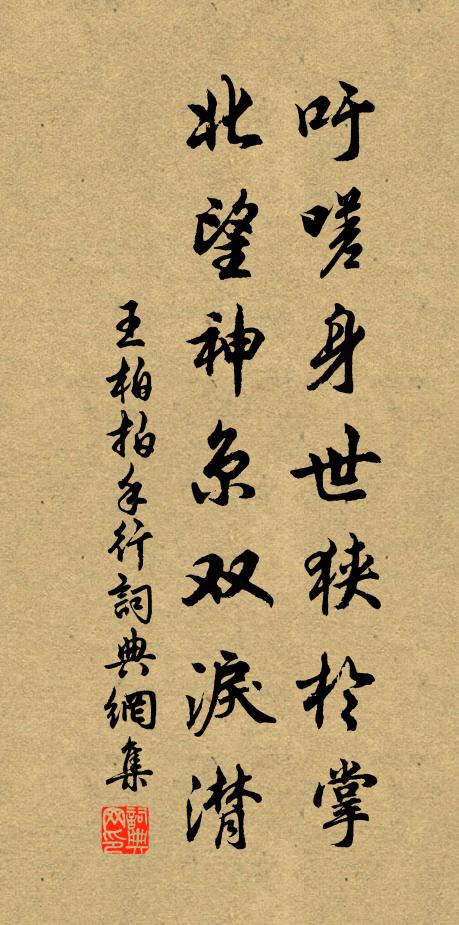 吁嗟身世狭於掌
北望神京双淚潸
王柏拍手行詞典網集
詞典網印